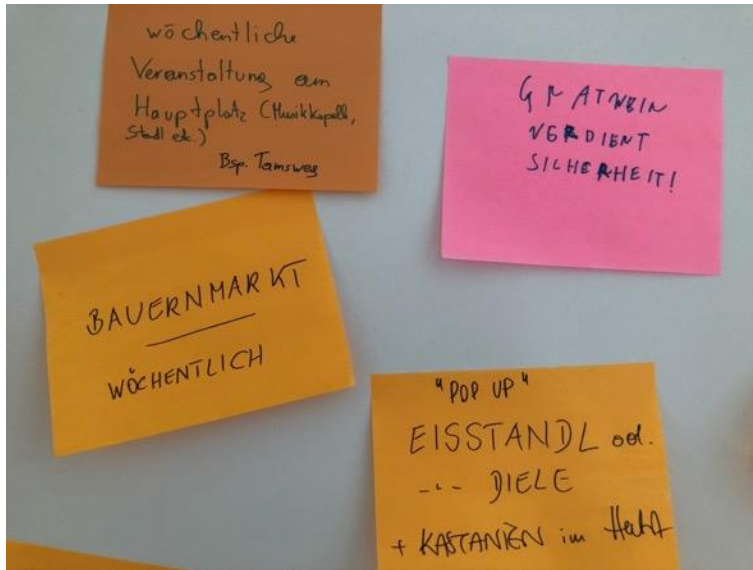 wöchentliche
Veranstaltung am
Hauptplatz (Musikkapelle,
Stadl etc.)
Bsp. Tamsweg
GRATWEIN
VERDIENT
SICHERHEIT!
BAUERNMARKT
WÖCHENTLICH
"POP UP"
EISSTANDL od.
-"- DIELE
+ KASTANIEN im Herbst